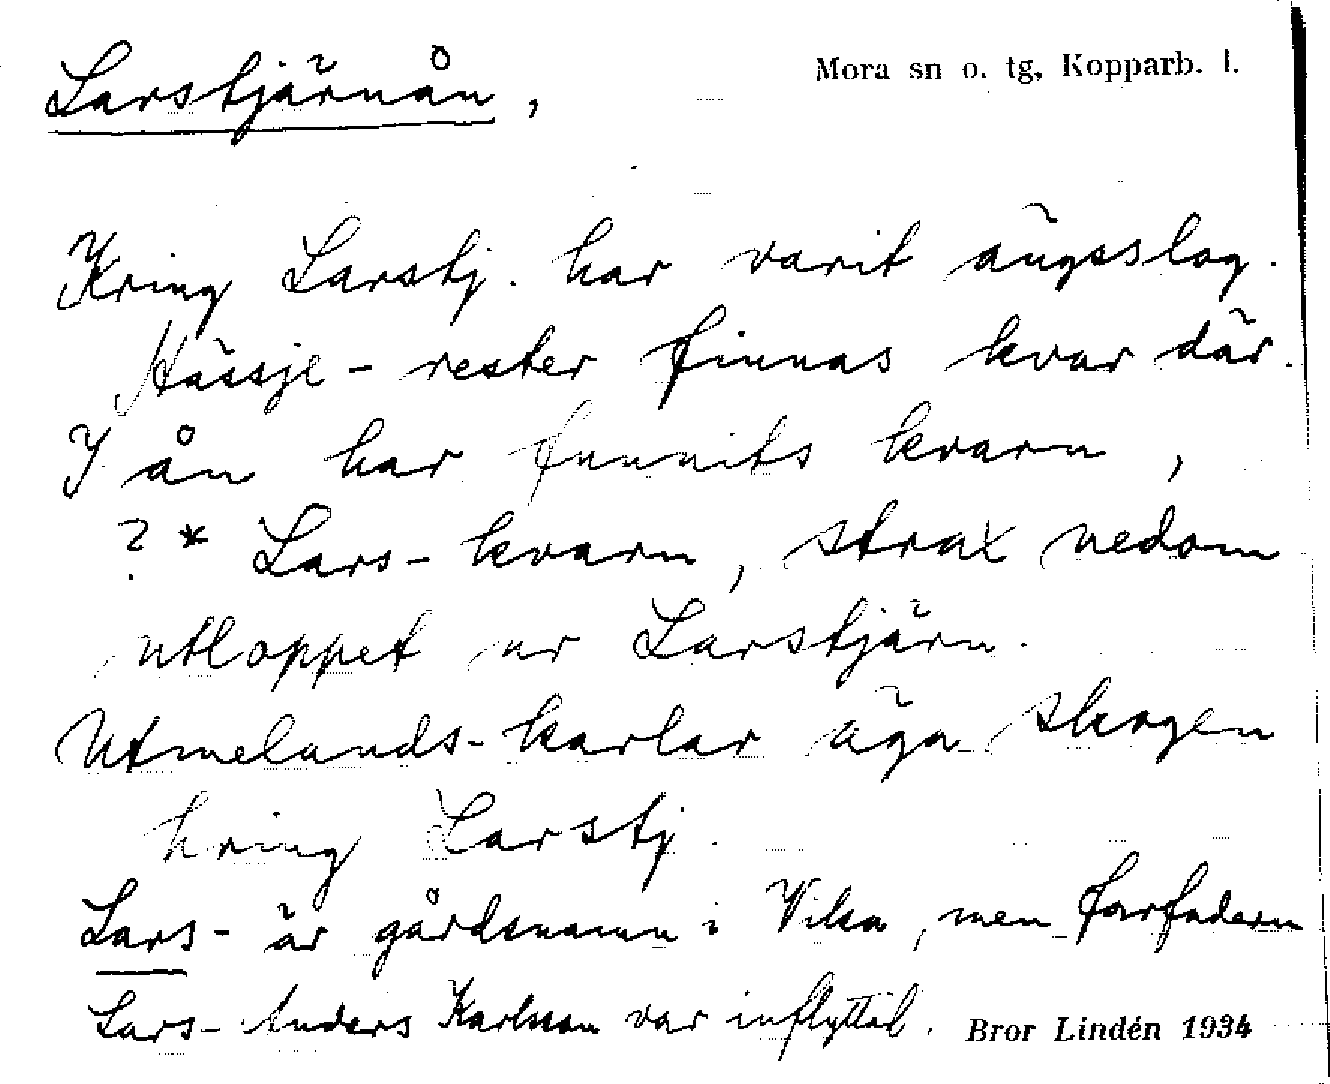 Larstjärnån,
Mora sn o. tg, Kopparb. l.
Kring Larstj. har varit ängsslog.
Hässje- rester finnas kvar där.
I ån har funnits kvarn,
? * Lars- kvarn, strax nedom
utloppet ur Larstjärn.
Utmelands- karlar äga skogen
kring Larstj.
Lars- är gårdsnamn i Vika, men farfadern
Lars- Anders Karlsson var inflyttad.
Bror Lindén 1934